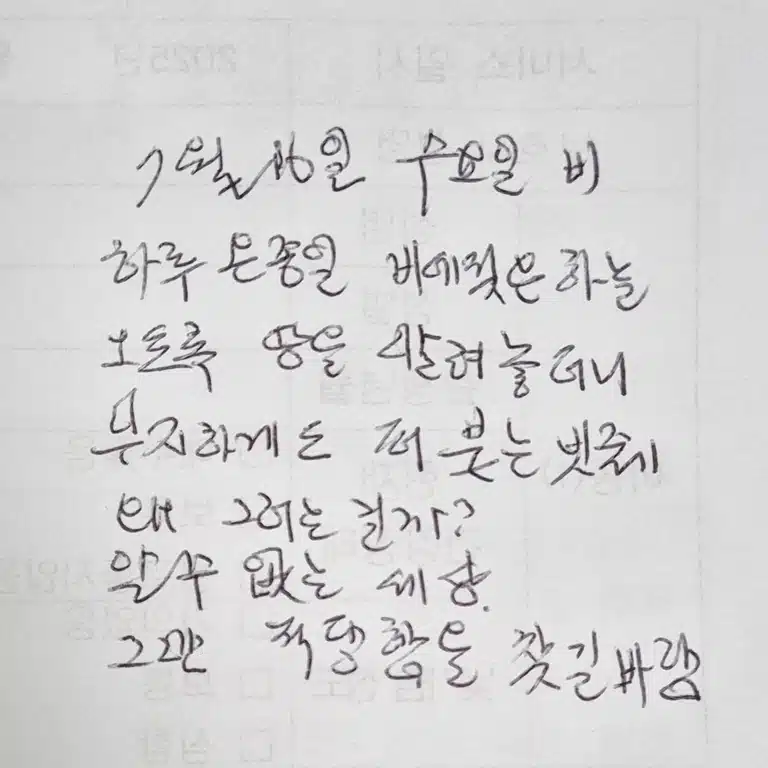 7월 16일 수요일 비
하루 온종일 비에젖은하늘
오토록 땅을 말려놓더니
무지하게도 퍼붓는빗줄기
왜 그러는걸까?
알수 없는 세상.
그만 적당함을 찾길바람